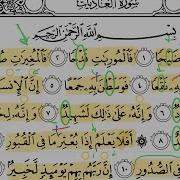 سورة العاديات
بِسْمِ اللَّهِ الرَّحْمَٰنِ الرَّحِيمِ
ضَبْحًا ۝١ فَالْمُورِيَٰتِ قَدْحًا ۝٢ فَالْمُغِيرَٰتِ
نَقْعًا ۝٤ فَوَسَطْنَ بِهِ جَمْعًا ۝٥ إِنَّ الْإِنسَٰنَ
۝٦ وَإِنَّهُ عَلَىٰ ذَٰلِكَ لَشَهِيدٌ ۝٧ وَإِنَّهُ
۝٨ أَفَلَا يَعْلَمُ إِذَا بُعْثِرَ مَا فِي الْقُبُورِ
فِي الصُّدُورِ ۝١٠ إِنَّ رَبَّهُم بِهِمْ يَوْمَئِذٍ لَّخَبِيرٌ